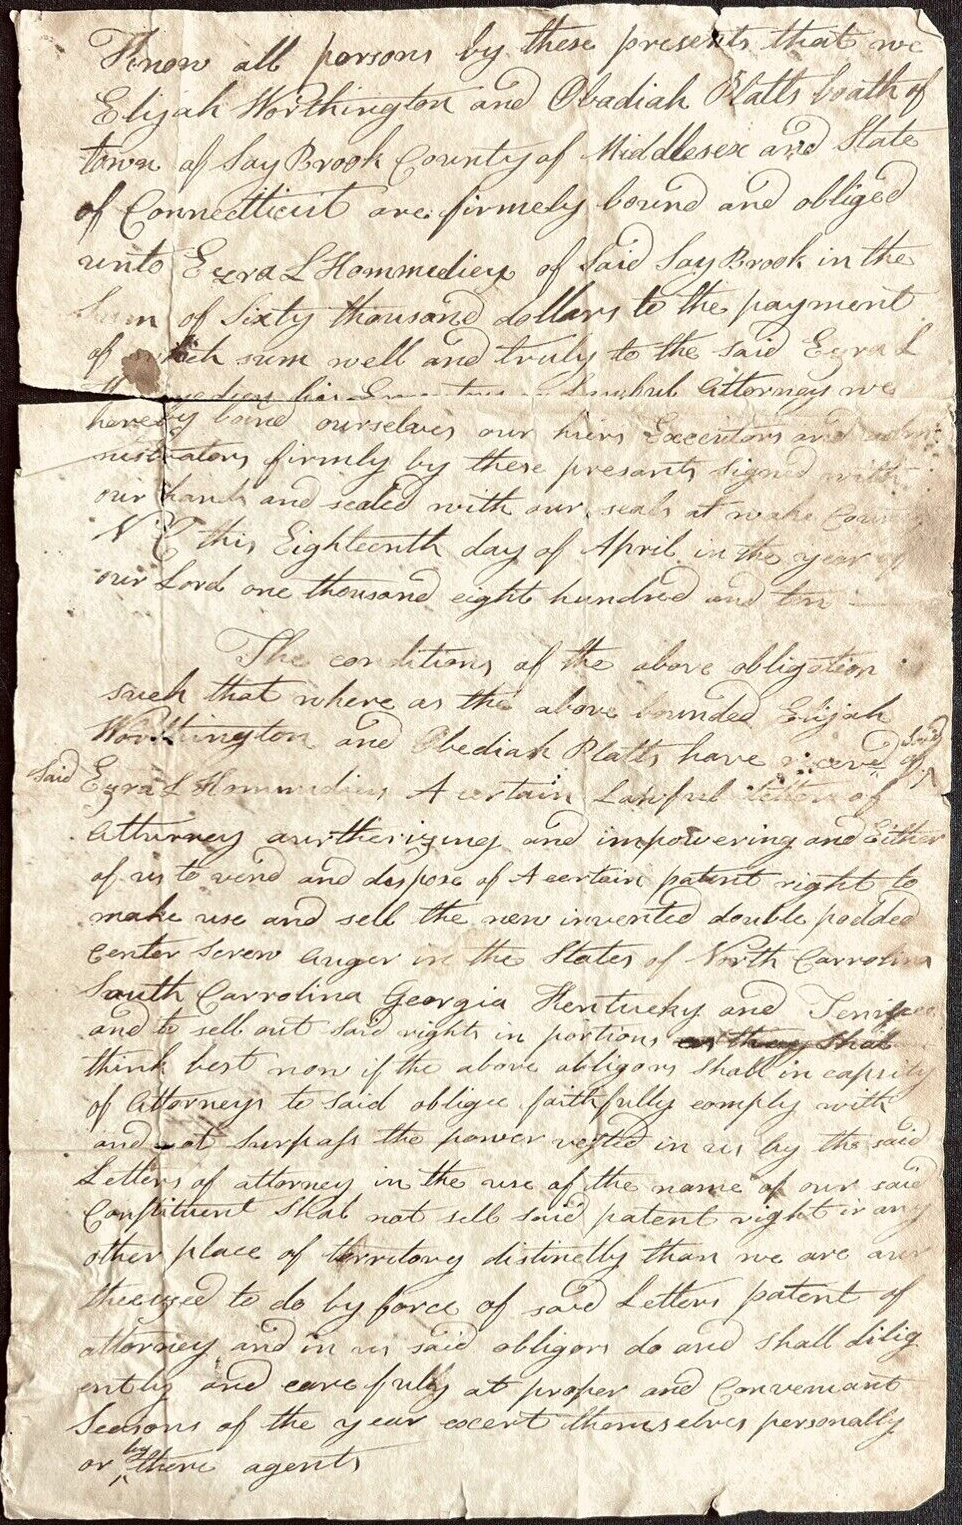 Know all persons by these presents that we
Elijah Worthington and Obadiah Platts boath of
town of Say Brook County of Middlesex and State
of Connecticut are firmely bound and obliged
unto Ezra L Hommedieu of Said Say Brook in the
Sum of Sixty thousand dollars to the payment
of which sum well and truly to the said Ezra L
his Attorneys we
hereby bind ourselves our hiers Executors and admi
nistrators firmly by these presants Signed with
our hands and sealed with our seals at wake
N C this Eighteenth day of April in the year of
our Lord one thousand eight hundred and ten
The conditions of the above obligation
such that where as the above bounded Elijah
Worthington and Obediah Platts have receved of
Said Ezra L Hommedieu A certain Lawful letter of
Atturney aurtherizing and impowering and Either
of us to vend and dispose of A certain patent right to
make use and sell the new invented double podded
center Screw auger in the States of North Carrolina
South Carrolina Georgia Kentucky and
and to sell out said rights in portions as they shal
think best now if the above obligors shall in capsity
of Attorneys to said obligee faithfully comply with
and not surpass the power vested in us by the said
Letters of attorney in the use of the name of our said
Constituent Shal not sell said patent right in any
other place of territory distinctly than we are aur
therized to do by force of said Letters patent of
attorney and in us said obligors do and shall dilig
ently and carefully at proper and Convenant
Seasons of the year excert themselves personally
or by there agents